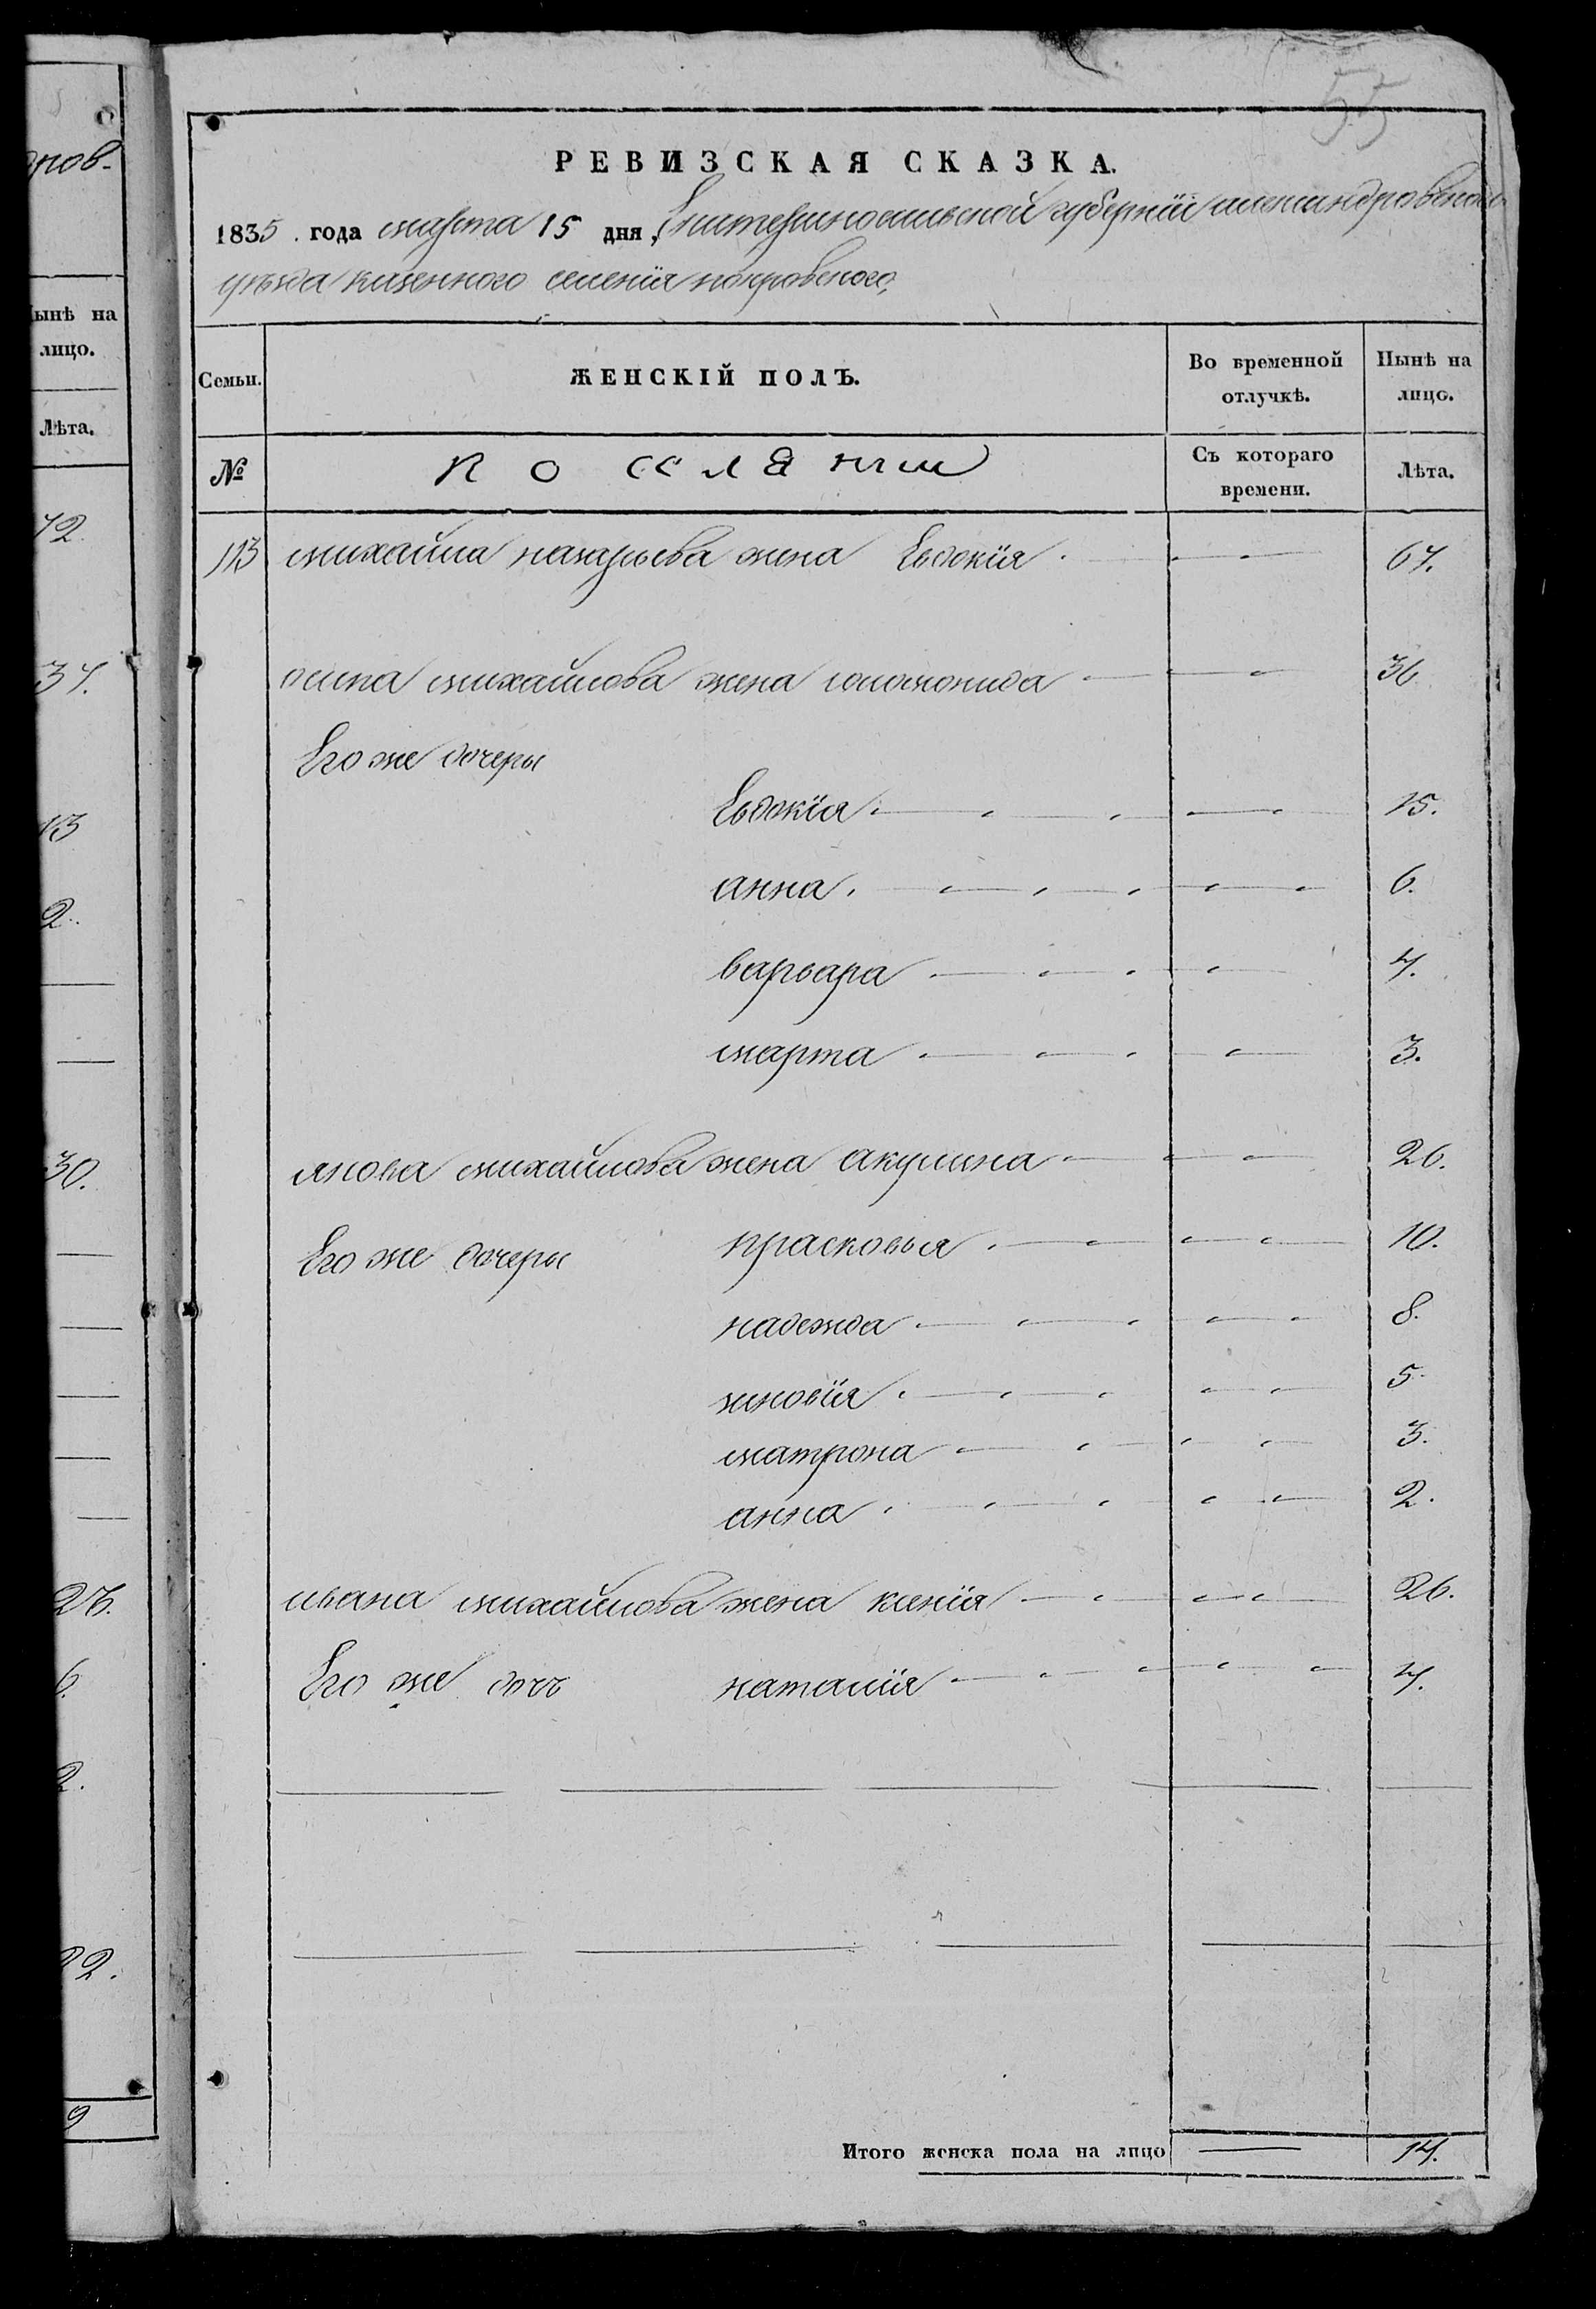 55
РЕВИЗСКАЯ СКАЗКА.
1835. года марта 15 дня, Екатеринославской губернїи александровского
уезда казенного селенїя покровского,
Семьи.
ЖЕНСКІЙ ПОЛЪ.
Во временной отлучкѣ.
Нынѣ на лицо.
№
поселяне
Съ котораго времени.
Лѣта.
113 михайла назарьева жена Евдокїя 67.
осипа михайлова жена соломонида 36
Его же дочеры
Евдокїя 15.
анна. 6.
варвара 4.
марта 3.
якова михайлова жена акулина 26.
Его же дочеры прасковья 10.
надежда 8.
зиновїя 5.
матрона 3.
анна 2.
ивана михайлова жена ксенїя 26.
Его же дочь наталїя 4.
Итого женска пола на лицо 14.
пров-
Нынѣ на
лицо.
Лѣта.
72.
34.
13
2.
30.
6.
2.
22.
9